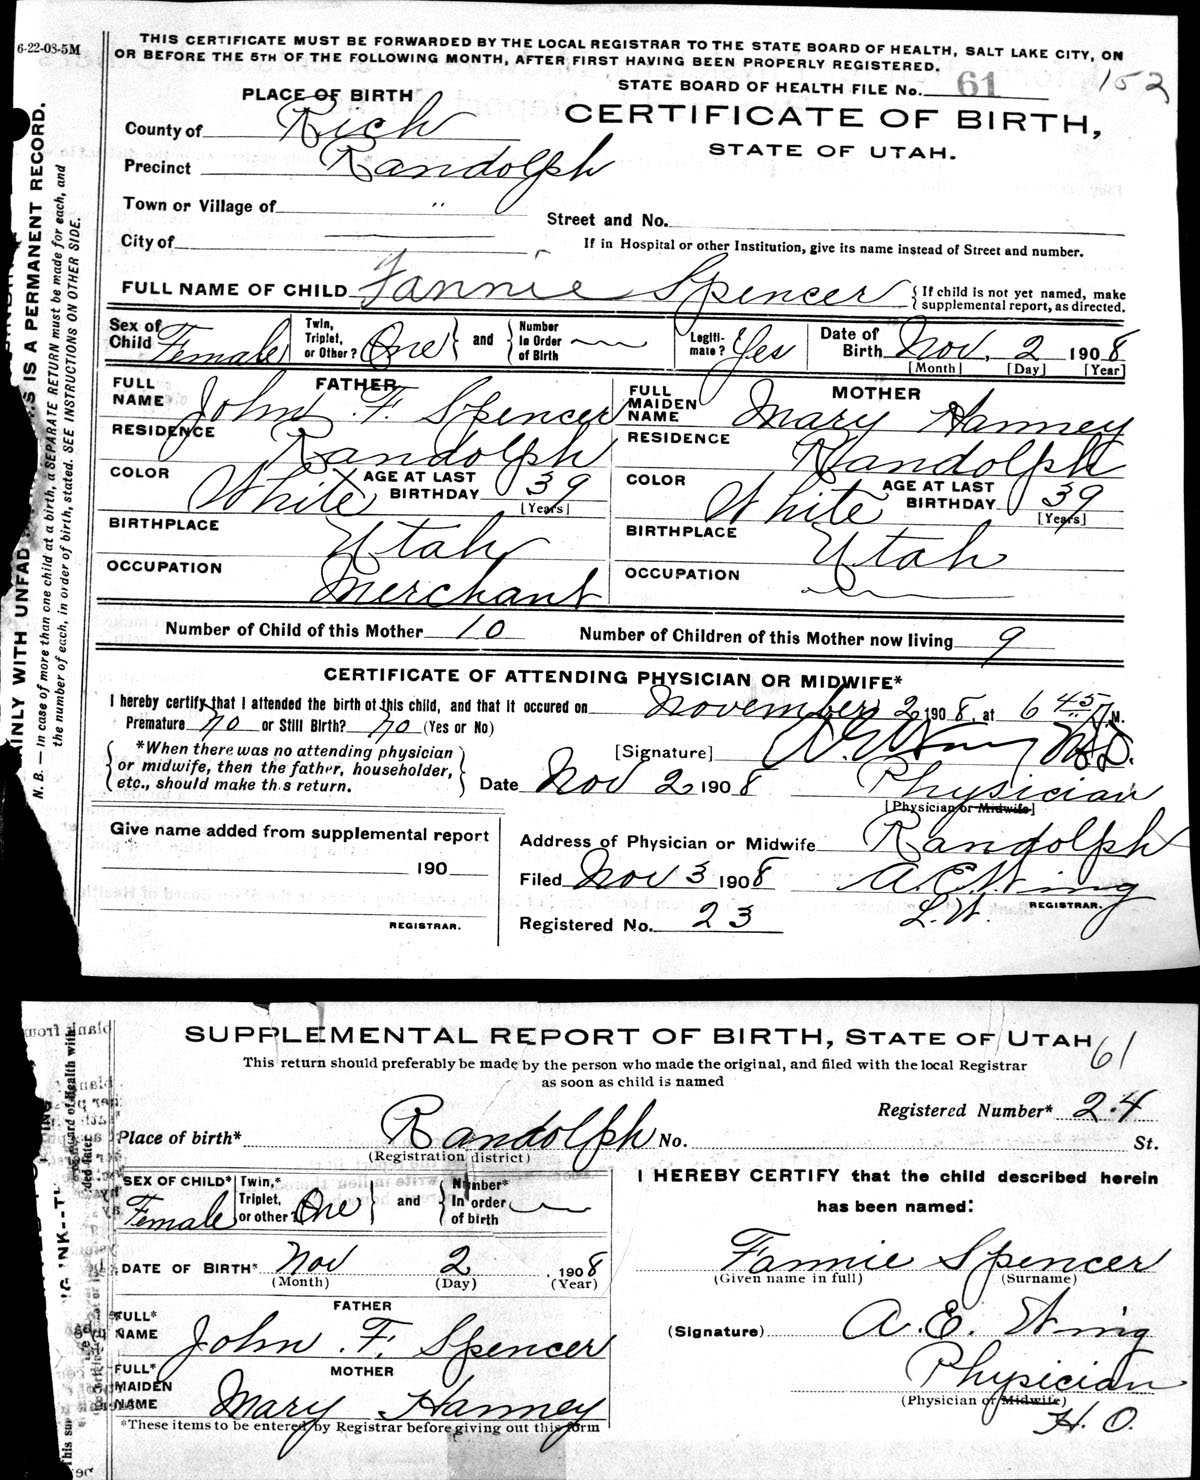 6-22-08-5M
THIS CERTIFICATE MUST BE FORWARDED BY THE LOCAL REGISTRAR TO THE STATE BOARD OF HEALTH, SALT LAKE CITY, ON
OR BEFORE THE 5TH OF THE FOLLOWING MONTH, AFTER FIRST HAVING BEEN PROPERLY REGISTERED.
STATE BOARD OF HEALTH FILE No. 61 152
PLACE OF BIRTH
CERTIFICATE OF BIRTH,
STATE OF UTAH.
County of Rich
Precinct Randolph
Town or Village of "
Street and No.
City of
If in Hospital or other Institution, give its name instead of Street and number.
FULL NAME OF CHILD Fannie Spencer { If child is not yet named, make supplemental report, as directed.
Sex of Child Female Twin, Triplet, or Other? One } and { Number In Order of Birth — Legiti-mate? Yes Date of Birth Nov. 2 1908
[Month] [Day] [Year]
FATHER MOTHER
FULL NAME John F. Spencer FULL MAIDEN NAME Mary Hanney
RESIDENCE Randolph RESIDENCE Randolph
COLOR White AGE AT LAST BIRTHDAY 39 [Years] COLOR White AGE AT LAST BIRTHDAY 39 [Years]
BIRTHPLACE Utah BIRTHPLACE Utah
OCCUPATION Merchant OCCUPATION —
Number of Child of this Mother 10 Number of Children of this Mother now living 9
CERTIFICATE OF ATTENDING PHYSICIAN OR MIDWIFE*
I hereby certify that I attended the birth of this child, and that it occured on November 2 1908, at 6 45 M.
Premature no or Still Birth? no (Yes or No)
{ *When there was no attending physician or midwife, then the father, householder, etc., should make this return. }
[Signature] A. E. Wing M.D.
Date Nov 2 1908 Physician
[Physician or Midwife]
Give name added from supplemental report
190
REGISTRAR.
Address of Physician or Midwife Randolph
Filed Nov 3 1908 A. E. Wing
REGISTRAR.
Registered No. 23
AINLY WITH UNFAD IS A PERMANENT RECORD.
N. B. — In case of more than one child at a birth, a SEPARATE RETURN must be made for each, and
the number of each, in order of birth, stated. SEE INSTRUCTIONS ON OTHER SIDE.
SUPPLEMENTAL REPORT OF BIRTH, STATE OF UTAH 61
This return should preferably be made by the person who made the original, and filed with the local Registrar
as soon as child is named
Registered Number* 24
Place of birth* Randolph No. St.
(Registration district)
SEX OF CHILD* Female Twin,* Triplet, or other? One } and { Number* In order of birth —
DATE OF BIRTH* Nov 2, 1908
(Month) (Day) (Year)
FATHER
FULL* NAME John F. Spencer
MOTHER
FULL* MAIDEN NAME Mary Hanney
*These items to be entered by Registrar before giving out this form
I HEREBY CERTIFY that the child described herein
has been named:
Fannie Spencer
(Given name in full) (Surname)
(Signature) A. E. Wing
Physician
(Physician or Midwife)
H. O.